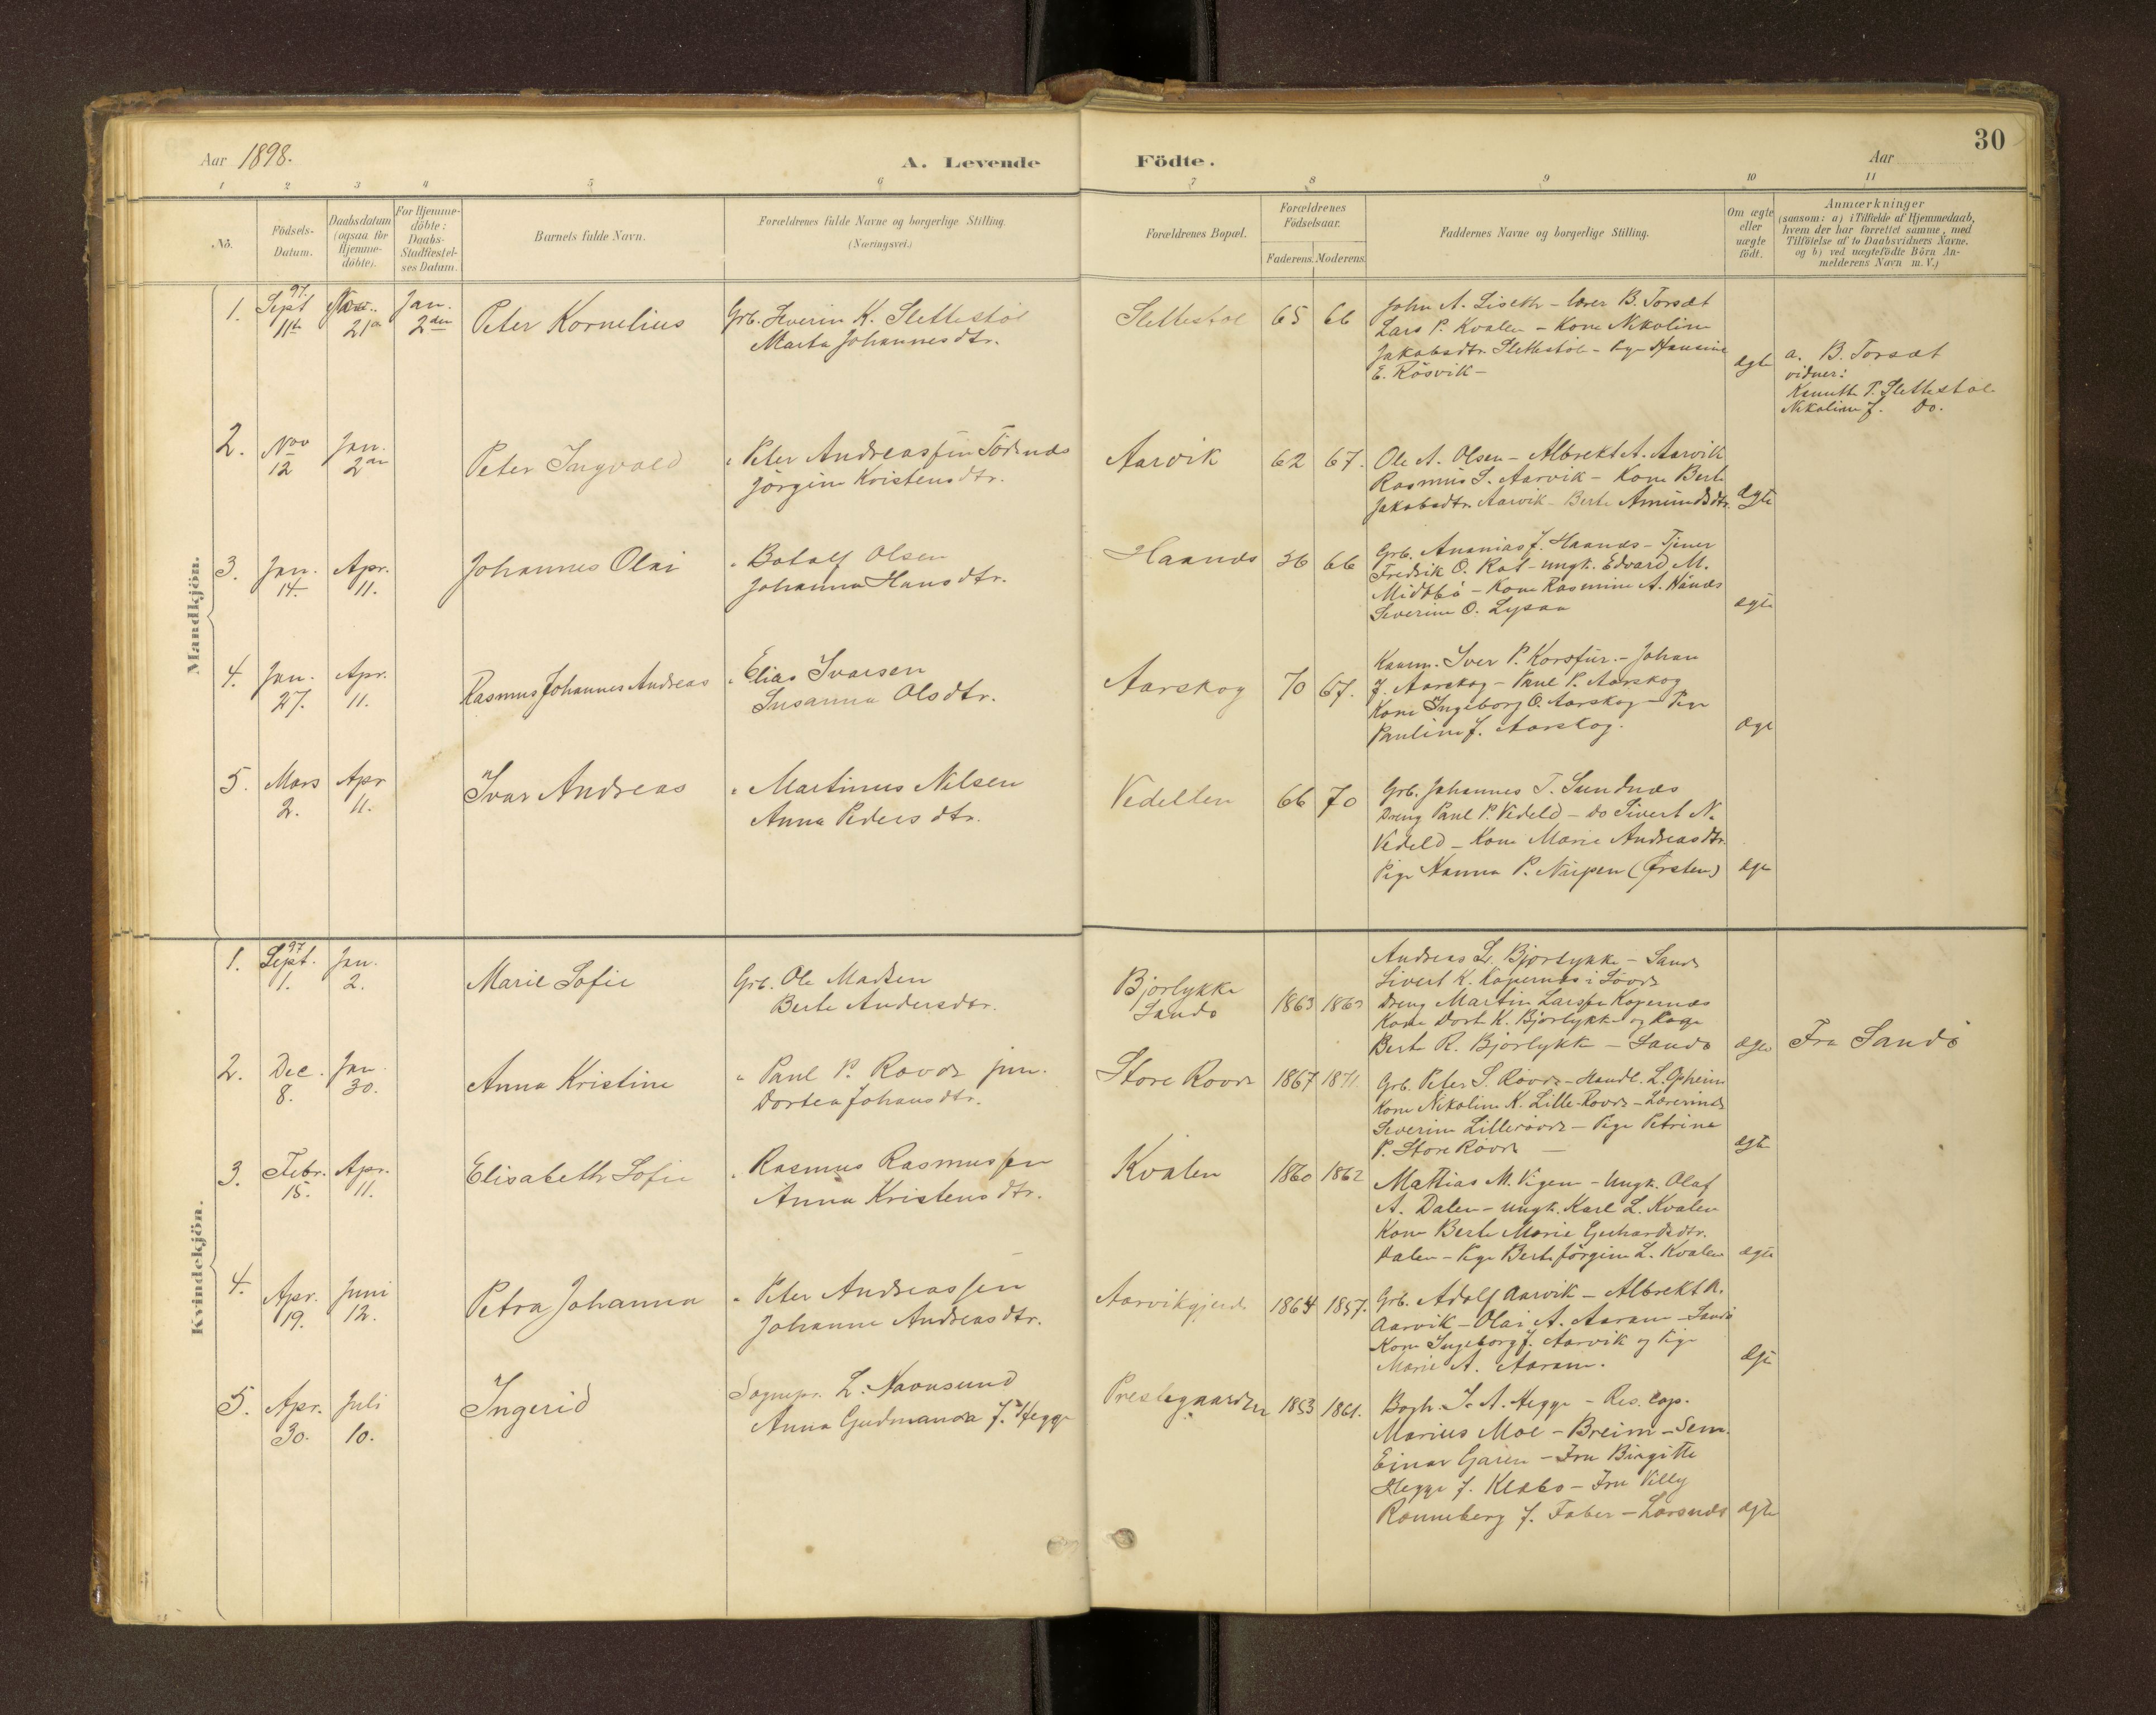 Aar 1898.
A. Levende
Födte.
Aar
30
1 2 3 4 5 6 7 8 9 10 11
Nö.
Födsels-
Datum.
Daabsdatum
(ogsaa for
Hjemme-
döbte).
For Hjemme-
döbte:
Daabs-
Stadfæstel-
ses Datum.
Barnets fulde Navn.
Forældrenes fulde Navne og borgerlige Stilling.
(Næringsvei.)
Forældrenes Bopæl.
Forældrenes
Födselsaar.
Faderens. Moderens.
Faddernes Navne og borgerlige Stilling.
Om ægte
eller
uægte
födt.
Anmærkninger
(saasom: a) i Tilfælde af Hjemmedaab,
hvem der har forrettet samme, med
Tilföielse af to Daabsvidners Navne.
og b) ved uægtefödte Börn An-
melderens Navn m. V.)
Mandkjön.
1.
97.
Sept
11te
21de
Jan.
2den
Peter Kornelius
Grb. Severin K. Slettestöl
Marta Johannesdtr.
Slettestöl
65
66
John A. Liseth - lærer B. Torsæt
Lars P. Kvalen - Kone Nikoline
Jakobsdtr. Slettestöl - Pige Hansine
E. Rösvik -
ægte
a. B. Torsæt
vidner:
P. Slettestöl
Nikoline J. Do.
2.
Nov
12
Jan.
2den
Peter Ingvald
" Peter Andreassen
Jörgine Kristensdtr.
Aarvik
62
67.
Ole A. Olsen - Albrekt A. Aarvik
Rasmus S. Aarvik - Kone Berte
Jakobsdtr. Aarvik - Berte Amundsdtr.
ægte
3.
Jan.
14.
Apr.
11.
Johannes Olai
" Botolf Olsen
Johanna Hansdtr.
Haanæs
36
66
Grb. Ananias J. Haanæs - Tjener
Fredrik O. Rot - ungk. Edvard M.
Midtbö - Kone Rasmine A. Hånæs
Severine O. Lysaa
ægte
4.
Jan.
27.
Apr.
11.
Rasmus Johannes Andreas
" Elias Ivarsen
Susanna Olsdtr.
Aarskog
70
67.
Iver P. Korsfur. - Johan
J. Aarskog - Paul P. Aarskog
Kone Ingeborg O. Aarskog - Pige
Pauline J. Aarskog.
ægte
5.
Mars
2.
Apr
11.
Ivar Andreas
" Martinus Nilsen
Anna Pedersdtr.
66
70
Grb. Johannes T. Sundnæs
Dreng Paul P. Vedeld - do Sivert N.
Vedeld - Kone Marie Andreasdtr.
Pige Hanna P. Nupen (Ørsten)
ægte
Kvindekjön.
1.
97
Sept.
1.
Jan.
2.
Marie Sofie
Grb. Ole Madsen
Berte Andersdtr.
Björlykke
Sandö
1863
Andreas L. Björlykke - Sandö
Sivert K. Kopernæs i
Dreng Martin Larsen Kopernæs
Kone Dorte K. Björlykke og Pige
Berte R. Björlykke - Sandö
ægte
Fra Sandö
2.
Dec.
8.
Jan
30.
Anna Kristine
" Paul P. Rovde jun.
Dortea Johansdtr.
Store Rovde
1867
1871.
Grb. Peter S. Rovde - Handl. L. Opheim
Kone Nikoline K. Lille-Rovde - Lærerinde
Severine Lillerovde - Pige Petrine
P. Store Rovde -
ægte
3.
Febr.
15.
Apr.
11.
Elisabeth Sofie
" Rasmus Rasmussen
Anna Kristensdtr.
Kvalen
1860
1862
Mathias M. Vigen - Ungk. Olaf
A. Dalen - ungk. Karl L. Kvalen
Kone Berte Marie Gerhardsdtr.
Dalen - Pige Berte Jörgine L. Kvalen
ægte
4.
Apr.
19.
Juni
12.
Petra Johanna
" Peter Andreassen
Johanne Andreasdtr.
Aarvikgjerde
1864
1857.
Grb. Adolf Aarvik - Albrekt A.
Aarvik - Olai A. Aaram - Sandö
Kone Ingeborg J. Aarvik og Pige
Marie A. Aaram.
ægte
5.
Apr.
30.
Juli
10.
Ingerid
Sognepr. L. Navnsund
Anna Gudmanda f. Hegge
Prestegaarden
1853
1861.
Bogh. J. A. Hegge - Res. Cap.
Marius Moe - Breim - Sem.
Einar Garen - Fru Birgitte
Hegge f. Klabo - Fru Villy
Rönneberg f. Faber - Larsnæs
ægte